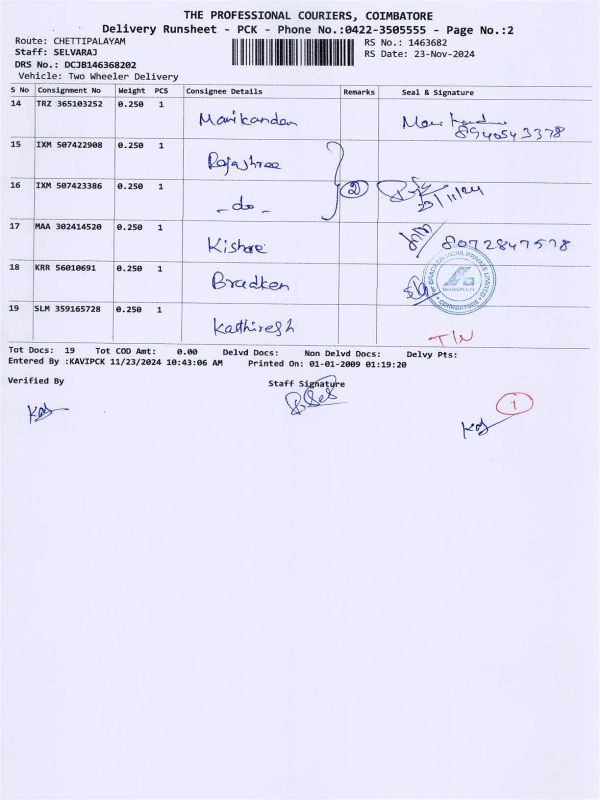 THE PROFESSIONAL COURIERS, COIMBATORE
Delivery Runsheet - PCK - Phone No.:0422-3505555 - Page No.:2
Route: CHETTIPALAYAM RS No.: 1463682
Staff: SELVARAJ RS Date: 23-Nov-2024
DRS No.: DCJB146368202
Vehicle: Two Wheeler Delivery
S No Consignment No Weight PCS Consignee Details Remarks Seal & Signature
14 TRZ 365103252 0.250 1 Manikandan
8940543378
15 IXM 507422908 0.250 1 Rajashree
16 IXM 507423386 0.250 1 - do - 2
23/11/24
17 MAA 302414520 0.250 1 Kishore 8072847578
18 KRR 56010691 0.250 1 Bradken BRADKEN INDIA PRIVATE LIMITED BRADKEN COIMBATORE
19 SLM 359165728 0.250 1 Kathiresh
T/N
Tot Docs: 19 Tot COD Amt: 0.00 Delvd Docs: Non Delvd Docs: Delvy Pts:
Entered By :KAVIPCK 11/23/2024 10:43:06 AM Printed On: 01-01-2009 01:19:20
Verified By Staff Signature
1